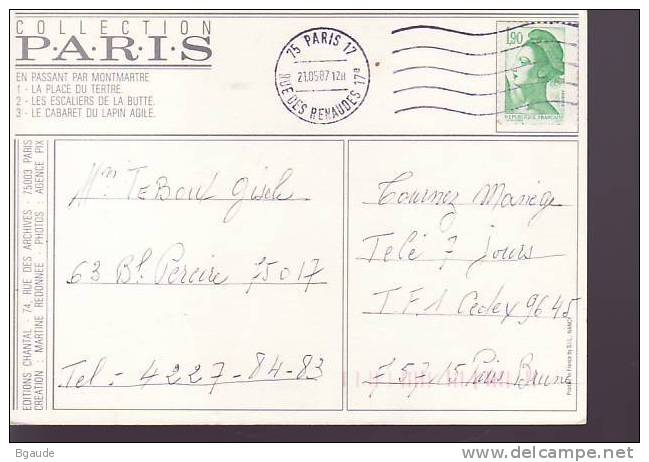 COLLECTION
P·A·R·I·S
EN PASSANT PAR MONTMARTRE
1 - LA PLACE DU TERTRE.
2 - LES ESCALIERS DE LA BUTTE.
3 - LE CABARET DU LAPIN AGILE.
75 PARIS 17
21.05 87 12H
RUE DES RENAUDES 17e
1,90
REPUBLIQUE FRANÇAISE
EDITIONS CHANTAL - 74, RUE DES ARCHIVES - 75003 PARIS
CREATION : MARTINE REDONNEE - PHOTOS : AGENCE PIX
63 Bd Pereire 75017
Tel - 4227-84-83
Tournez Manège
Telé 7 Jours
T.F.1 Cedex 9645
75715 Paris Brune
Bgaude
www.delcampe.net